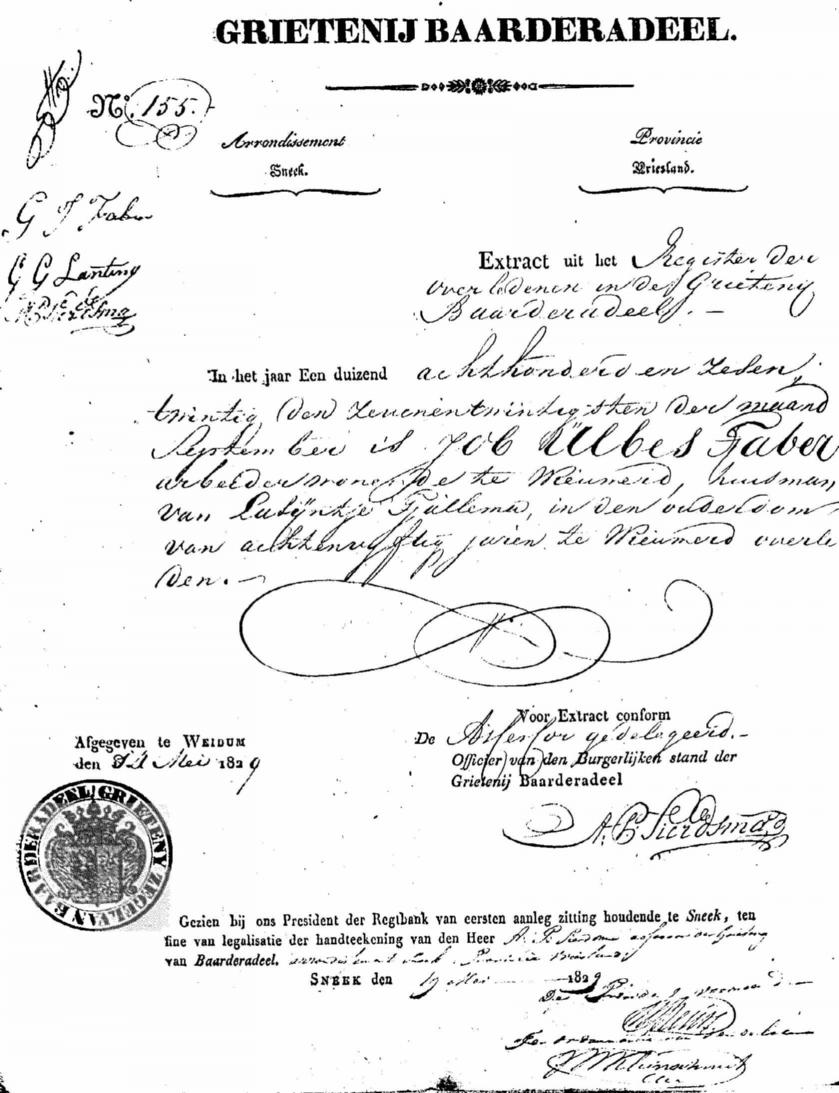 GRIETENIJ BAARDERADEEL.
No. 155.
Arrondissement
Sneek.
Provincie
Vriesland.
G J Faber
G G Lanting
Extract uit het Register der
overledenen in de Grietenij
Baarderadeel. —
In het jaar Een duizend achthonderd en zesen
twintig, den zeuvenentwintigsten der maand
September is Job Ulbes Faber
arbeider woonende te Wieuwerd, huisman,
van Lutjntje Tjallema, in den ouderdom
van achtenvyftig jaren te Wieuwerd overle
den. —
Voor Extract conform
De Assessor gedelegeerd. —
Officier van den Burgerlijken stand der
Grietenij Baarderadeel
A. P. Sierdsma
Afgegeven te WEIDUM
den Mei 1829
GRIETENY ZEGEL VAN BAARDERADEEL
Gezien bij ons President der Regtbank van eersten aanleg zitting houdende te Sneek, ten
fine van legalisatie der handteekening van den Heer A. P. Sierdsma assessor der Grieteny
van Baarderadeel, Provincie Vriesland
SNEEK den 19 Mei 1829
De President voornoemd